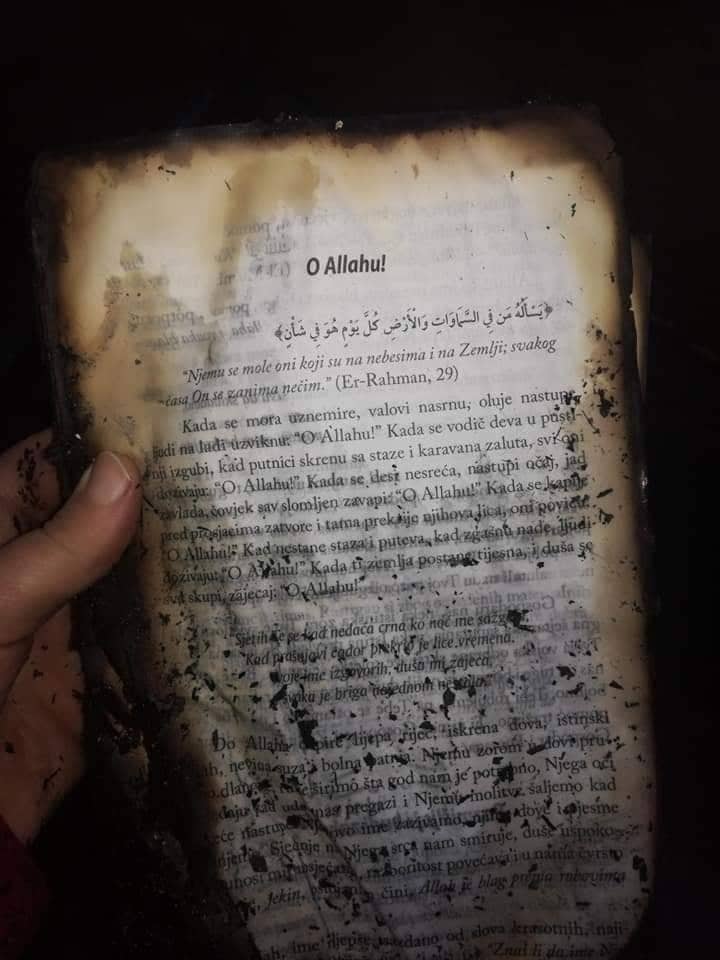 O Allahu!
﴿يَسْأَلُهُ مَن فِي السَّمَاوَاتِ وَالْأَرْضِ كُلَّ يَوْمٍ هُوَ فِي شَأْنٍ﴾
"Njemu se mole oni koji su na nebesima i na Zemlji; svakog
časa On se zanima nečim." (Er-Rahman, 29)
Kada se mora uznemire, valovi nasrnu, oluje nastupe,
ljudi na lađi uzviknu: "O Allahu!" Kada se vodič deva u pusti-
nji izgubi, kad putnici skrenu sa staze i karavana zaluta, svi oni
dozivaju: "O Allahu!" Kada se desi nesreća, nastupi očaj, jad
zavlada, čovjek sav slomljen zavapi: "O Allahu!" Kada se kapije
pred prosjacima zatvore i tama prekrije njihova lica, oni poviču:
"O Allahu!" Kad nestane staza i puteva, kad zgasnu nade, ljudi
dozivaju: "O Allahu!" Kada ti zemlja postane tijesna, i duša se
sva skupi, zaječaj: "O Allahu!"
Sjetih se kad nedaća crna ko noć me
Kad prašnjavi prekrio je lice vremena.
ime izgovorih, duša mi zaječa,
je briga
Do Allaha dopire lijepa riječ, iskrena dova, istinski
nevina suza i bolna patnja. Njemu zorom u dovi pru-
širimo šta god nam je potrebno, Njega oči
kad nas pregazi i Njemu molitve šaljemo kad
nastupe. Njegovo ime zazivamo, njim dove i pjesme
Sjećanje na Njega srca nam smiruje, duše uspoko-
razboritost povećava i u nama čvrsto
Jekin, čini, Allah je blag prema robovima
ime ljepše nadano od slova krasotnih, naji-
"Znaš li da ime